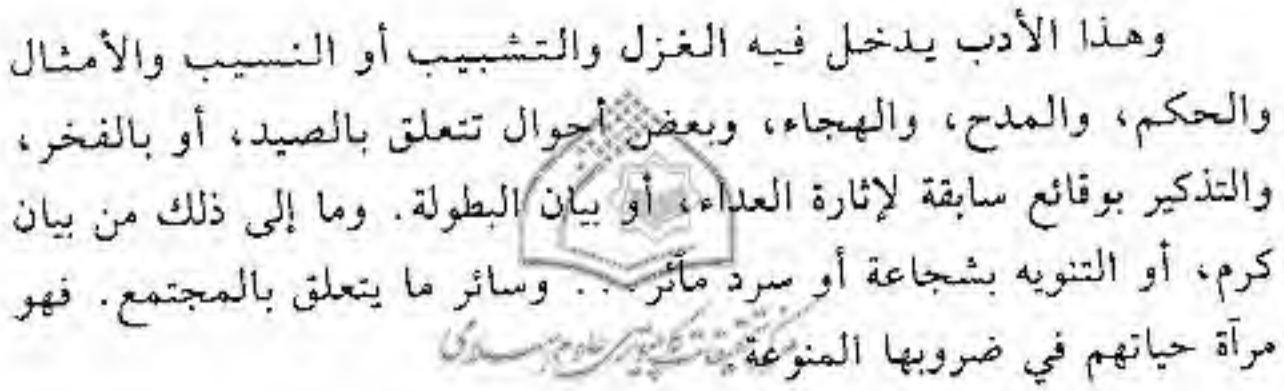 وهذا الأدب يدخل فيه الغزل والتشبيب أو النسيب والأمثال
والحكم، والمدح، والهجاء، وبعض أحوال تتعلق بالصيد، أو بالفخر،
والتذكير بوقائع سابقة لإثارة العداء، أو بيان البطولة. وما إلى ذلك من بيان
كرم، أو التنويه بشجاعة أو سرد مآثر... وسائر ما يتعلق بالمجتمع. فهو
مرآة حياتهم في ضروبها المنوعة